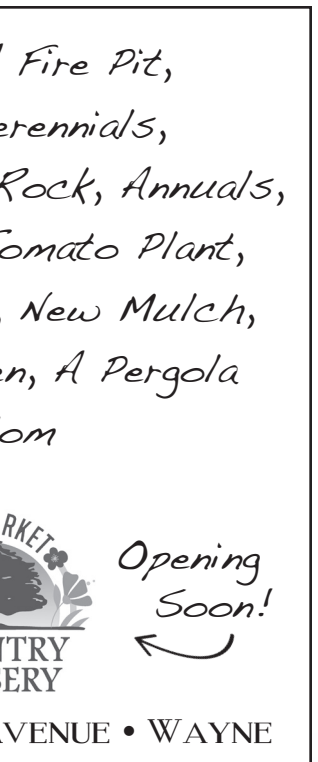 Fire Pit,
erennials,
Rock, Annuals,
Tomato Plant,
, New Mulch,
en, A Pergola
om
RKET
Opening
Soon!
NTRY
SERY
AVENUE • WAYNE